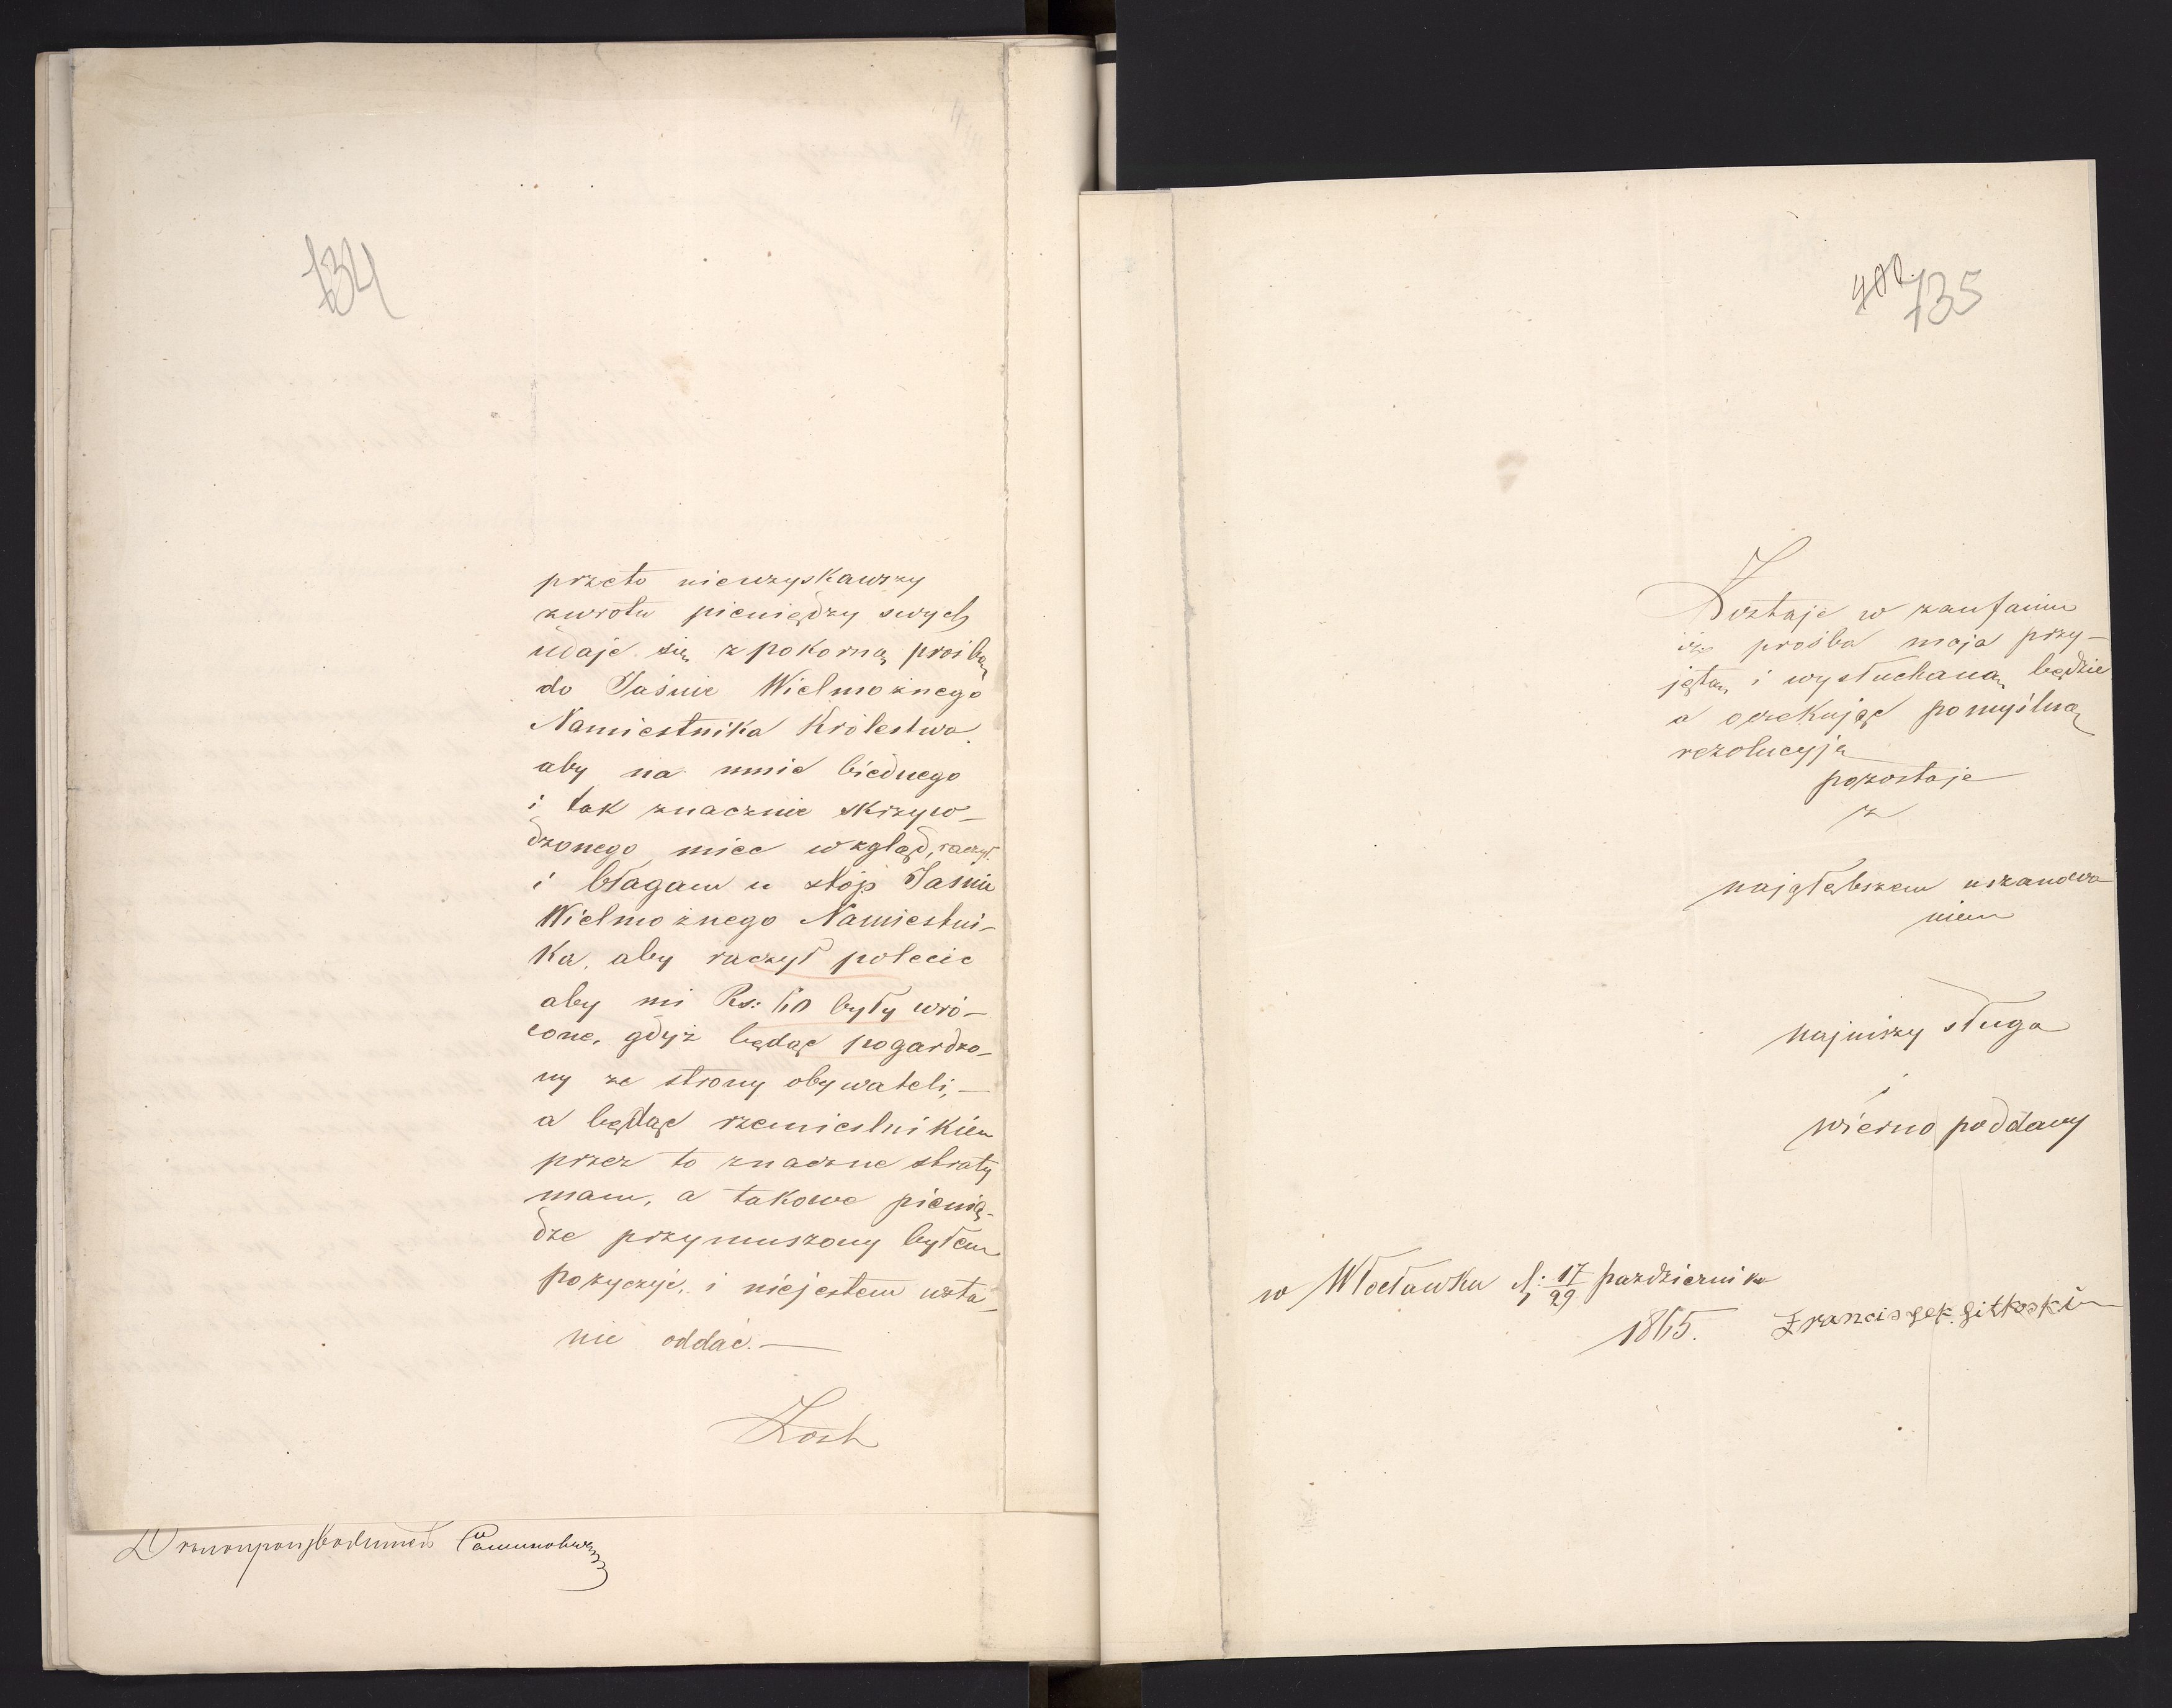 134
przeto nieuzyskawszy
zwrotu pieniędzy swych
udaje się z pokorną prośbą
do Jaśnie Wielmożnego
Namiestnika Królestwa
aby na mnie biednego
i tak znacznie skrzyw-
dzonego, miec wzgląd, raczył
i błagam u stóp Jaśnie
Wielmożnego Namiestni-
ka, aby raczył polecic
aby mi Rs: 60 były wró-
cone, gdyż będąc pogardzo-
ny ze strony obywateli,-
a będąc rzemieslnikiem
przez to znaczne straty
mam, a takowe pienią-
dze przymuszony byłem
pozyczyć, i niejestem wsta-
nie oddać.-
Zosta
Делопроизводитель
135
Zostaje w zaufaniu
iże prośba moja przy-
jętą i wysłuchaną będzie
a oczekując pomyślną
rezolucyją
pozostaje
z
najgłębszem uszanowa
niem
najniszy sługa
i
wierno poddany
w Włocławku d: 17/29 pazdziernika
1865. Franciszek Gitkoski